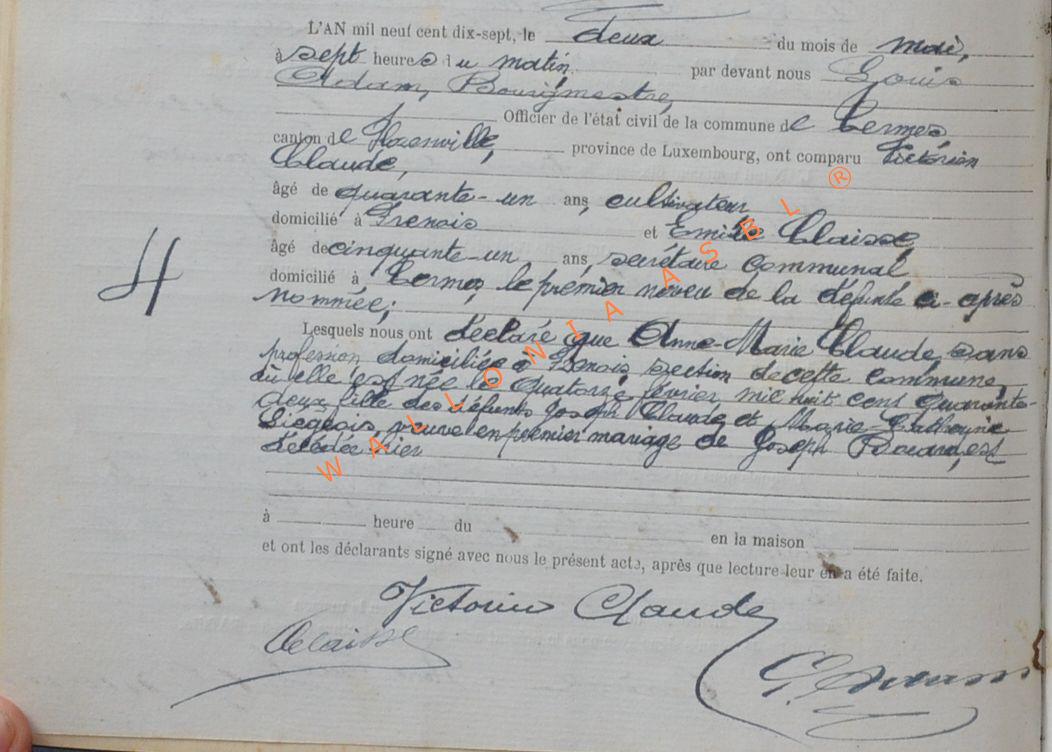 L'AN mil neuf cent dix-sept, le deux du mois de mai,
à sept heures du matin par devant nous Louis
Adam, Bourgmestre,
Officier de l'état civil de la commune de Termes
canton de Florenville, province de Luxembourg, ont comparu Victorien
Claude,
âgé de quarante-un ans, cultivateur
domicilié à Frenois et Emile Claisse,
âgé de cinquante-un ans, secrétaire communal
domicilié à Termes, le premier neveu de la défunte ci-après
nommée;
Lesquels nous ont déclaré que Anne-Marie Claude, sans
profession domiciliée à Frenois section de cette commune,
où elle est née le quatorze février mil huit cent quarante-
deux, fille des défunts Joseph Claude et Marie-Catherine
Liégeois, veuve en premier mariage de Joseph est
décédée hier
à heure du en la maison
et ont les déclarants signé avec nous le présent acte, après que lecture leur en a été faite.
4
Victorin Claude
WALLONIA ASBL ®